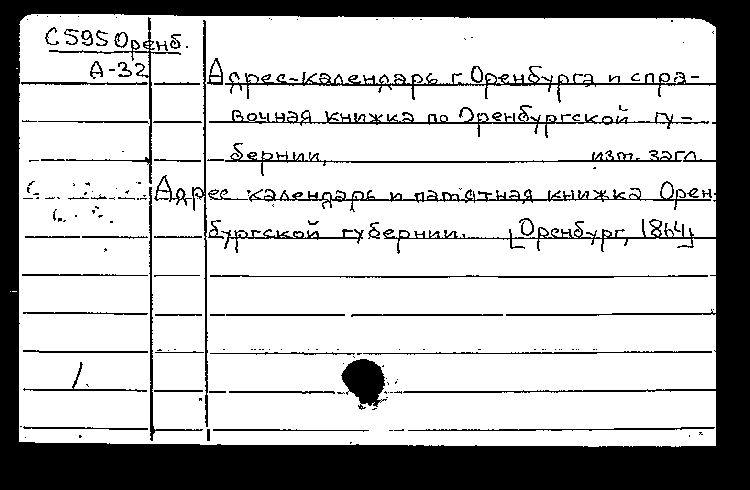 С595 Оренб.
А-32
Адрес-календарь г. Оренбурга и спра-
вочная книжка по Оренбургской гу-
бернии, изм. загл.
Адрес календарь и памятная книжка Орен-
бургской губернии. [Оренбург, 1864]
1.